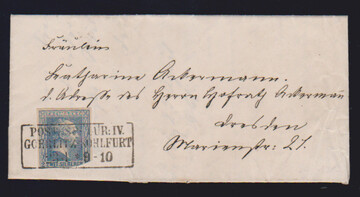 Fräulein
Katharine Ackermann.
d. Adresse des Herrn Hofrath Ackermann
Dresden
Marienstr: 21.
POST SPED: BUR: IV.
GOERLITZ KOHLFURT
9-10